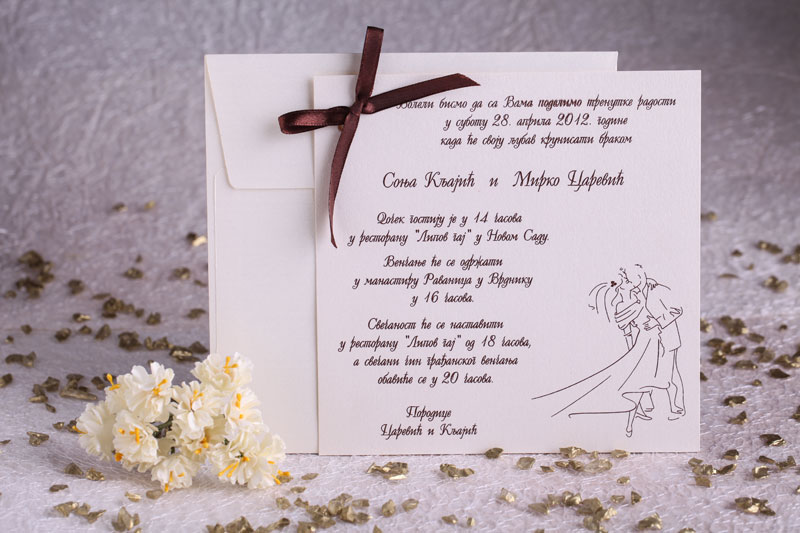 Волели бисмо да са Вама поделимо тренутке радости
у суботу 28. априла 2012. године
када ће своју љубав крунисати браком
Соња Кљајић и Мирко Царевић
Дочек гостију је у 14 часова
у ресторану "Липов гај" у Новом Саду.
Венчање ће се одржати
у манастиру Раваница у Врднику
у 16 часова.
Свечаност ће се наставити
у ресторану "Липов гај" од 18 часова,
а свечани чин грађанског венчања
обавиће се у 20 часова.
Породице
Царевић и Кљајић